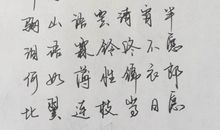 骊山语罢清宵半
泪语霖铃终不怨
何如薄倖锦衣郎
比翼连枝当日愿